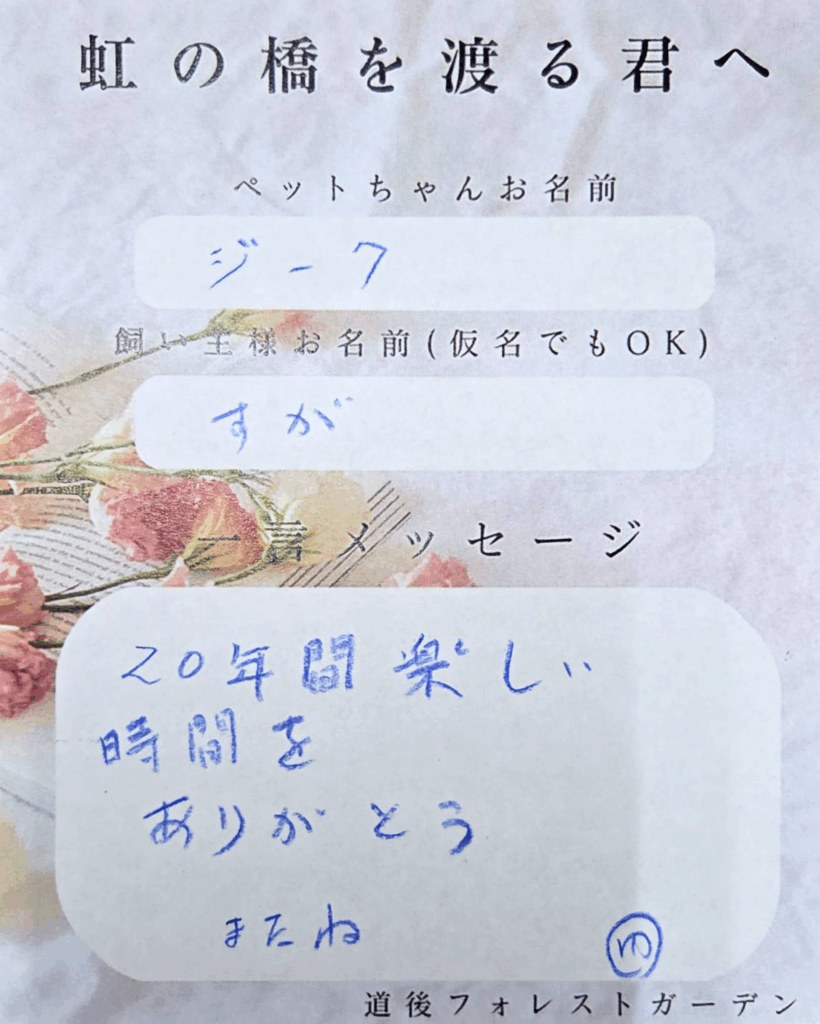 虹の橋を渡る君へ
ペットちゃんお名前
ジーク
飼い主様お名前(仮名でもOK)
すが
一言メッセージ
20年間楽しい
時間を
ありがとう
またね
ゆ
道後フォレストガーデン